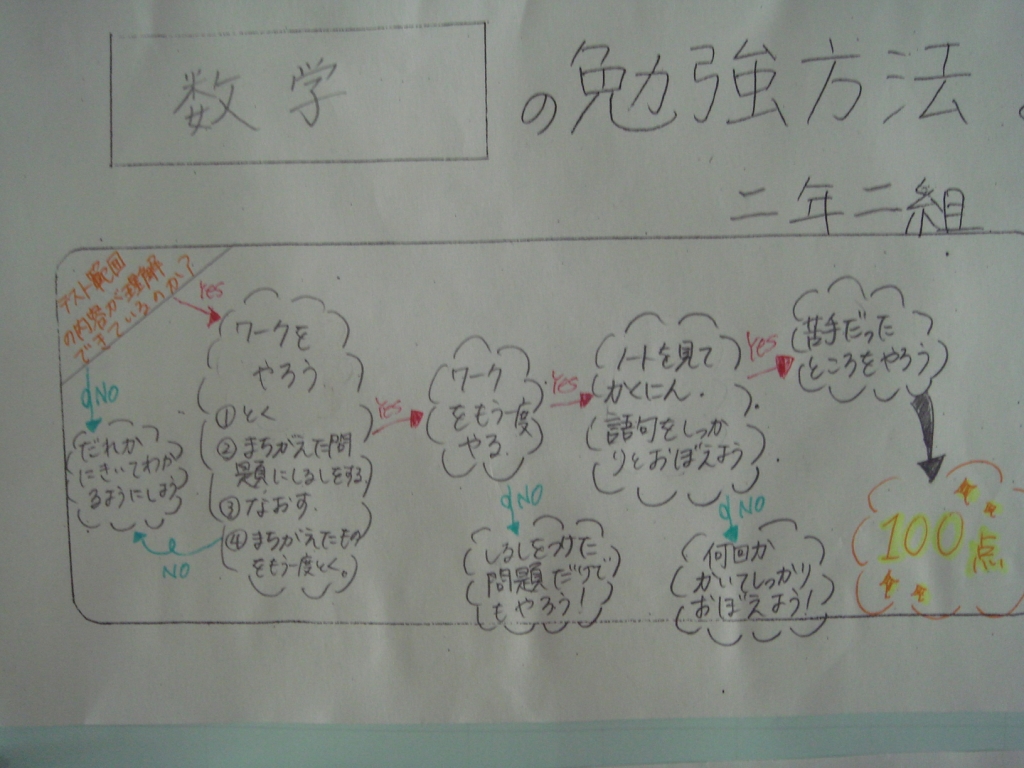 数学
の勉強方法
二年二組
テスト範囲
の内容が理解
できているのか？
Yes
NO
だれか
にきいてわか
るようにしよう
ワークを
やろう
①とく
②まちがえた問
題にしるしをする
③なおす.
④まちがえたもの
をもう一度とく。
NO
Yes
ワーク
をもう一度
やる.
NO
しるしをつけた
問題だけで
もやろう！
Yes
ノートを見て
かくにん.
語句をしっか
りとおぼえよう
NO
何回か
かいてしっかり
おぼえよう！
Yes
苦手だった
ところをやろう
100点